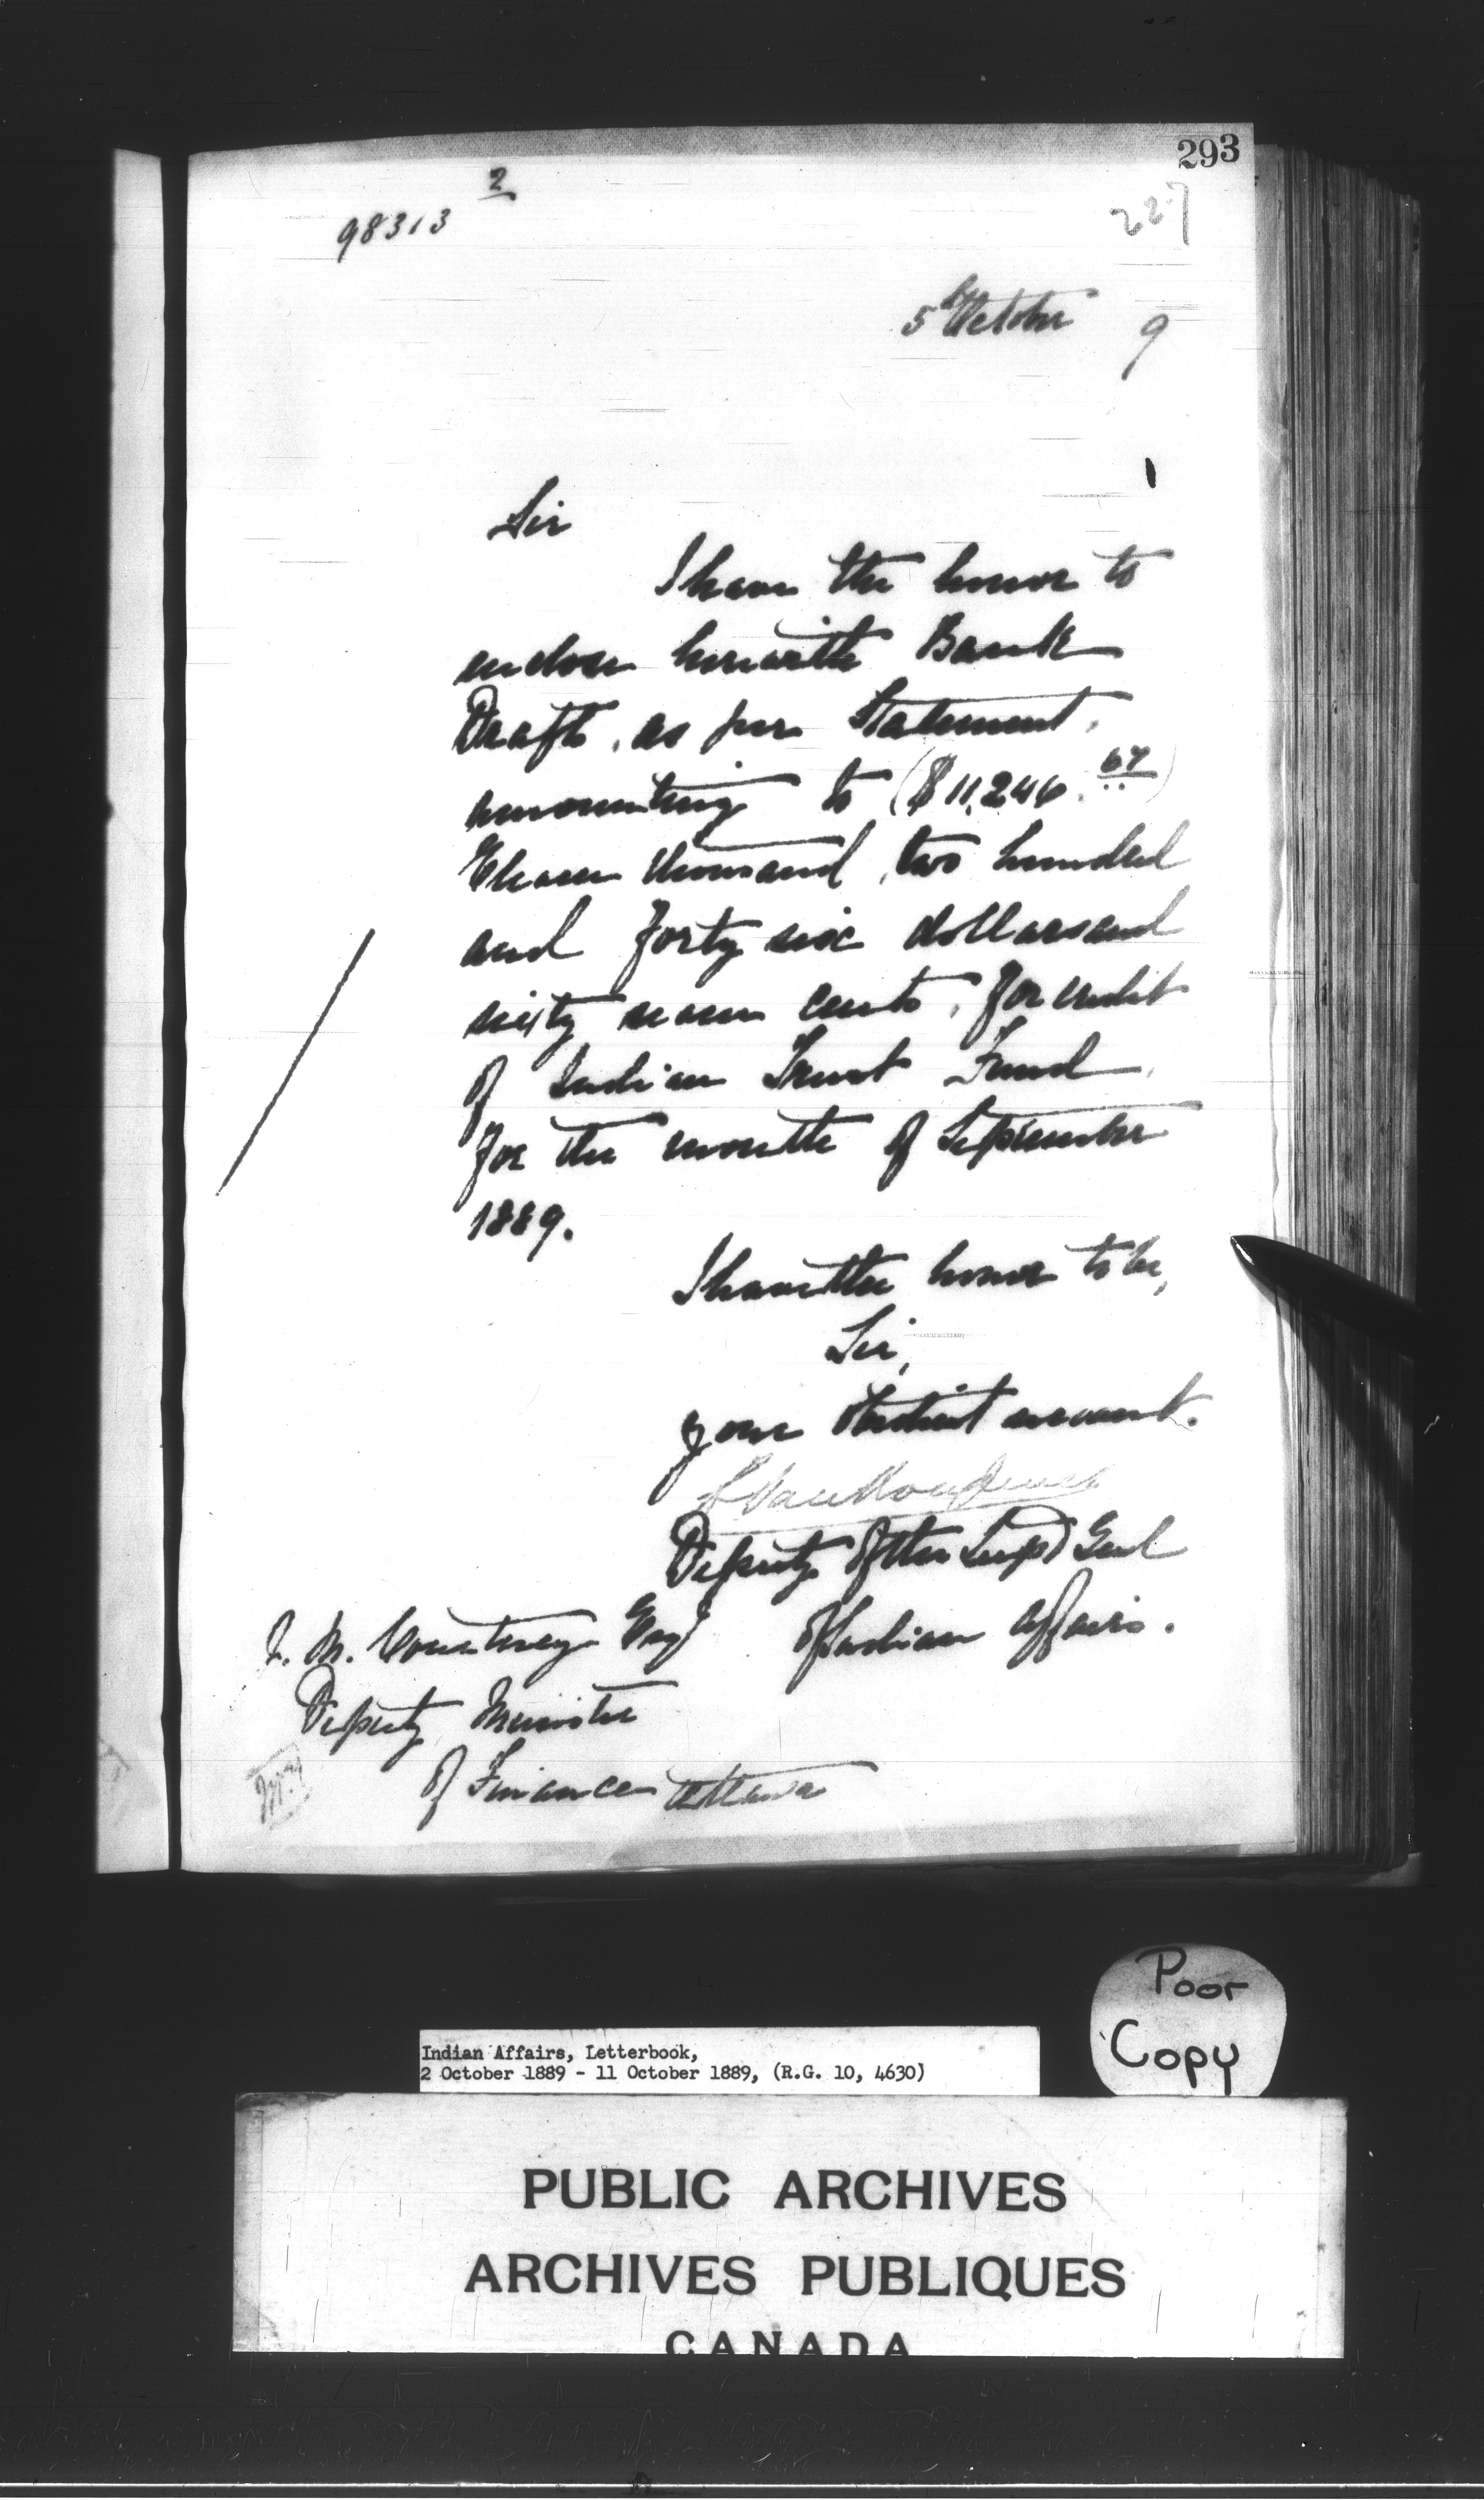 293
2
98313
227
5th October 9
Sir
I have the honor to
enclose herewith Bank
Draft, as per Statement,
amounting to ($11,246.67)
Eleven thousand, two hundred
and forty six dollars and
sixty seven cents, for credit
of Indian Trust Fund,
for the month of September
1889.
I have the honor to be,
Sir,
your obedient servant.
L Vankoughnet
Deputy of the Supt Genl
of Indian Affairs.
J. M. Courtney Esq
Deputy Minister
of Finance Ottawa
Poor
Copy
Indian Affairs, Letterbook,
2 October 1889 - 11 October 1889, (R.G. 10, 4630)
PUBLIC ARCHIVES
ARCHIVES PUBLIQUES
CANADA